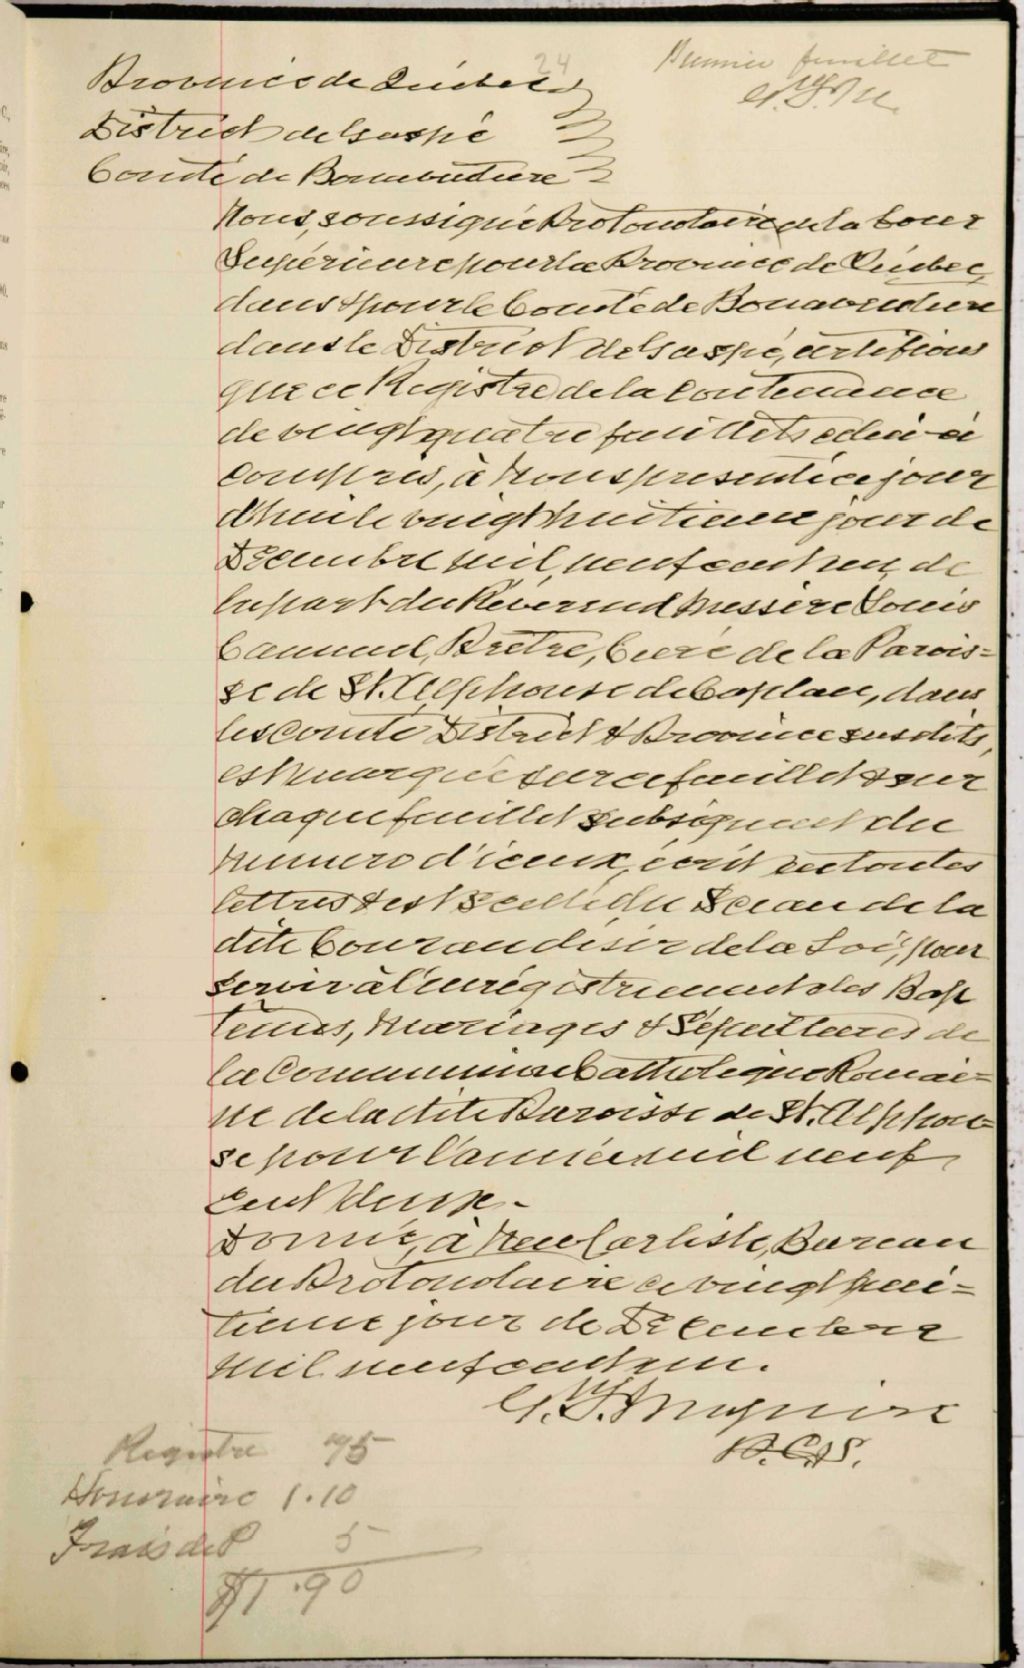 24
Premier feuillet
Province de Québec
District de Gaspé
Comté de Bonaventure
Nous, soussigné Protonotaire de la Cour
Supérieure pour la Province de Québec,
dans & pour le Comté de Bonaventure
dans le District de Gaspé, certifions
que ce Registre de la Contenance
de vingt quatre feuillets celui-ci
compris, à Nous présenté ce jour
d'hui le vingt huitieme jour de
Décembre mil neuf cent un, de
la part du Révérend Messire Louis
Prêtre, Curé de la Parois=
se de St. Alphonse de Caplan, dans
les Comté District & Province susdits,
est marqué sur ce feuillet & sur
chaque feuillet subséquent du
numero d'iceux, écrit en toutes
lettres & est scellé du Sceau de la
dite Cour au désir de la Loi, pour
servir à l'enrégistrement des Bap
têmes, Mariages & Sépultures de
la Communion Catholique Romai=
ne de la dite Paroisse de St. Alphon=
se pour l'année mil neuf
cent deux.-
Donné, à New Carlisle, Bureau
du Protonotaire ce vingt hui=
tieme jour de Décembre
mil neuf cent un.
P.C.S.
Registre 75
Honoraire 1.10
Frais de P 5
$1.90